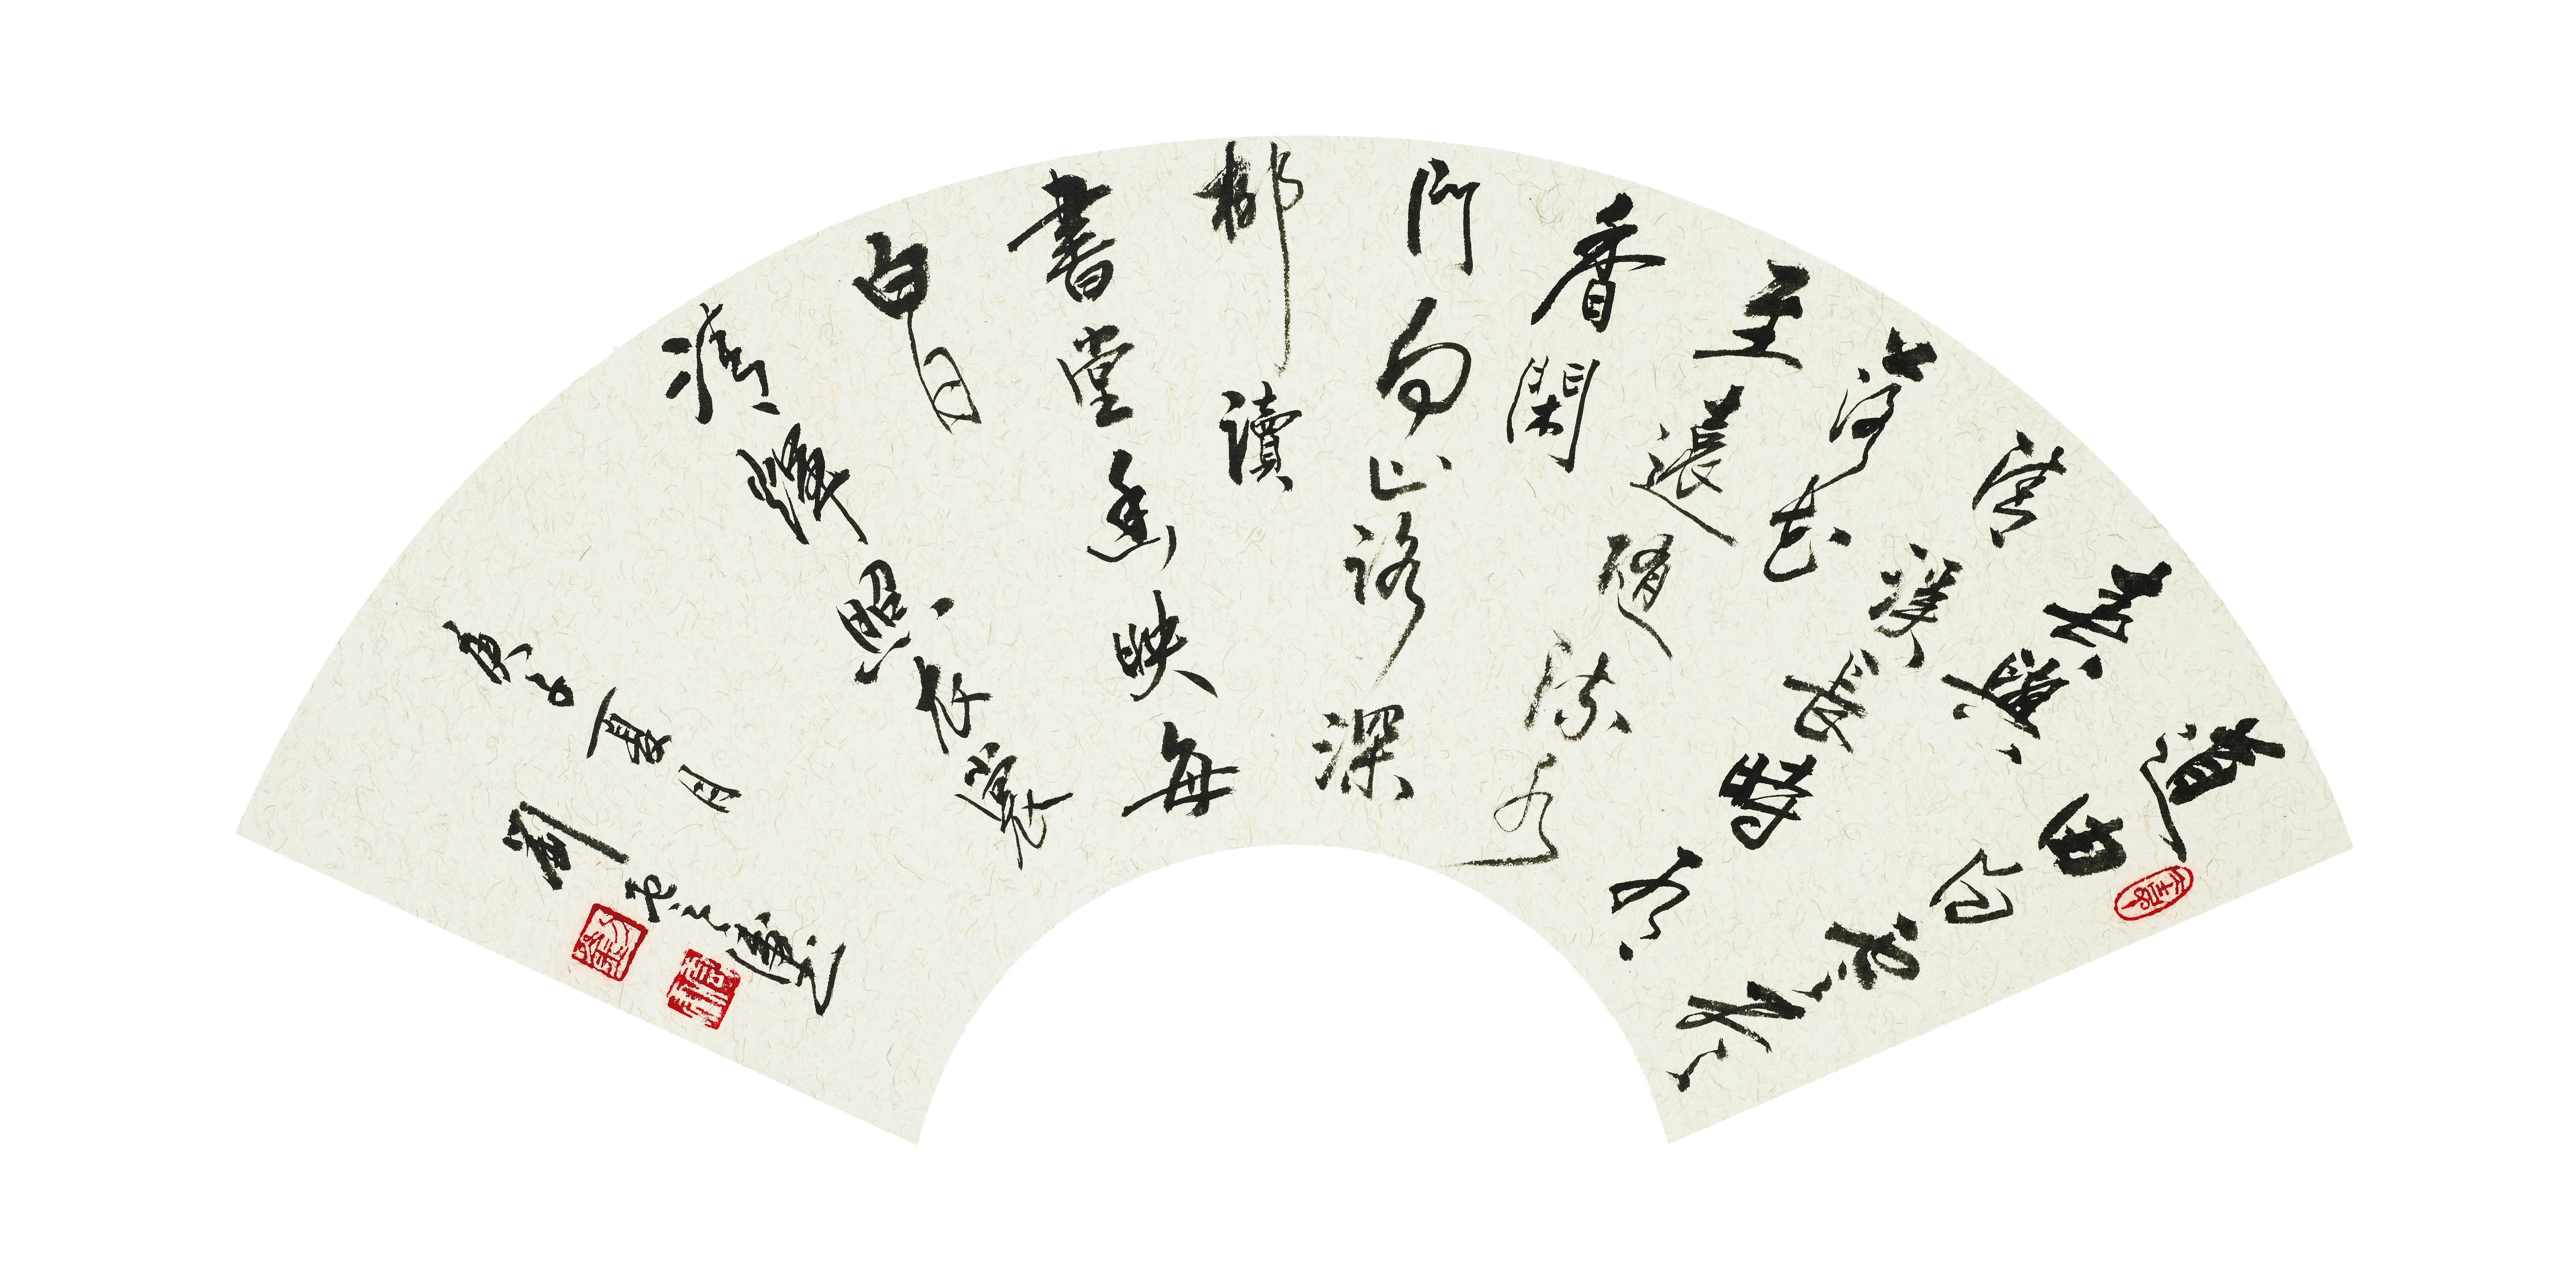 道由白雲盡
春與
清溪長時有
落花
至遠隨流水
香閑
門向山路深
柳讀
書堂幽映每
白日
清輝照衣裳
庚子夏月
劉